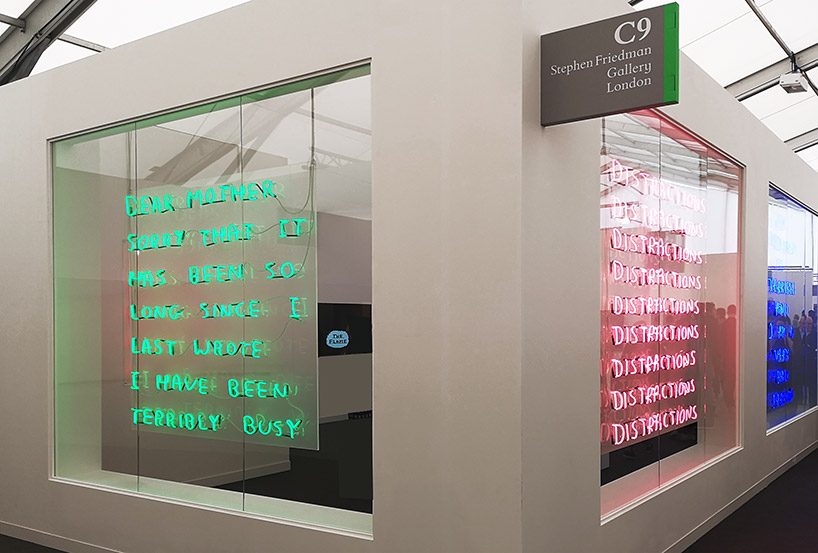 DEAR MOTHER
SORRY THAT IT
HAS BEEN SO
LONG SINCE I
LAST WROTE
I HAVE BEEN
TERRIBLY BUSY
THE
FLAME
C9
Stephen Friedman
Gallery
London
DISTRACTIONS
DISTRACTIONS
DISTRACTIONS
DISTRACTIONS
DISTRACTIONS
DISTRACTIONS
DISTRACTIONS
DISTRACTIONS
DISTRACTIONS